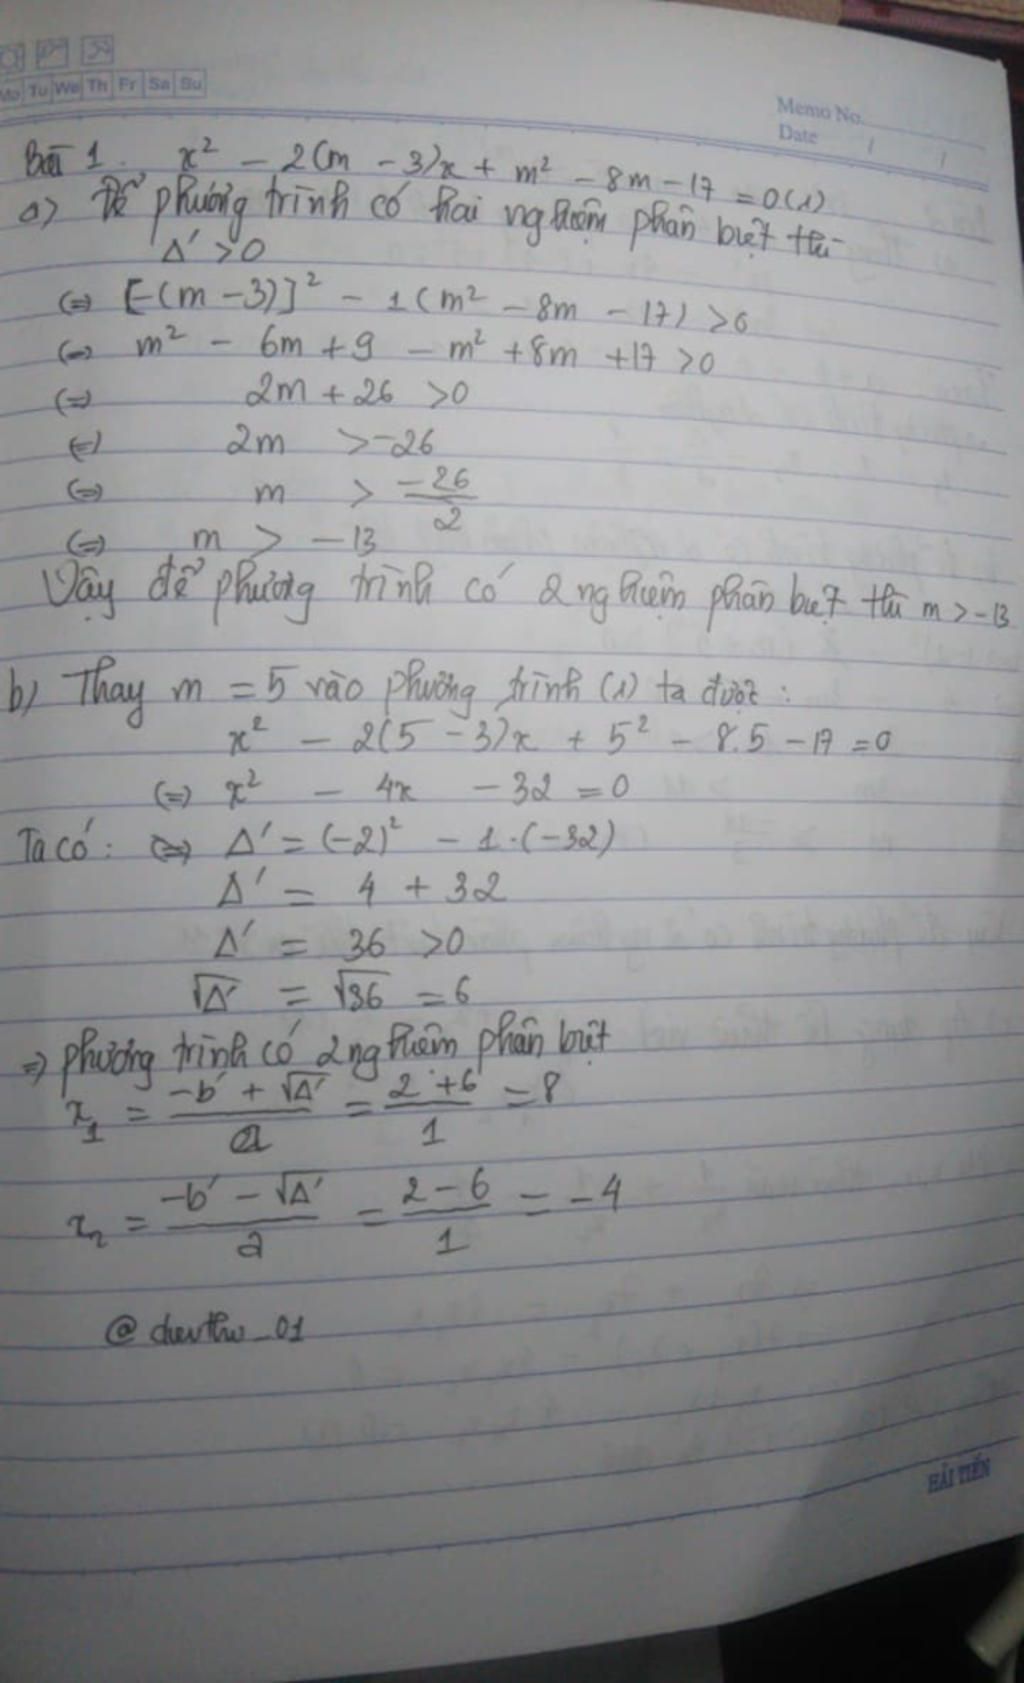 Mo Tu We Th Fr Sa Su
Memo No.
Date / /
Bài 1. x² - 2(m - 3)x + m² - 8m - 17 = 0 (1)
a) Để phương trình có hai nghiệm phân biệt thì
Δ' > 0
(=) [-(m - 3)]² - 1(m² - 8m - 17) > 0
(=) m² - 6m + 9 - m² + 8m + 17 > 0
(=) 2m + 26 > 0
(=) 2m > -26
(=) m > -26/2
(=) m > -13
Vậy để phương trình có 2 nghiệm phân biệt thì m > -13
b) Thay m = 5 vào phương trình (1) ta được :
x² - 2(5 - 3)x + 5² - 8.5 - 17 = 0
(=) x² - 4x - 32 = 0
Ta có : (=) Δ' = (-2)² - 1.(-32)
Δ' = 4 + 32
Δ' = 36 > 0
√Δ' = √36 = 6
=) phương trình có 2 nghiệm phân biệt
x₁ = (-b' + √Δ')/a = (2 + 6)/1 = 8
x₂ = (-b' - √Δ')/a = (2 - 6)/1 = -4
HẢI TIẾN